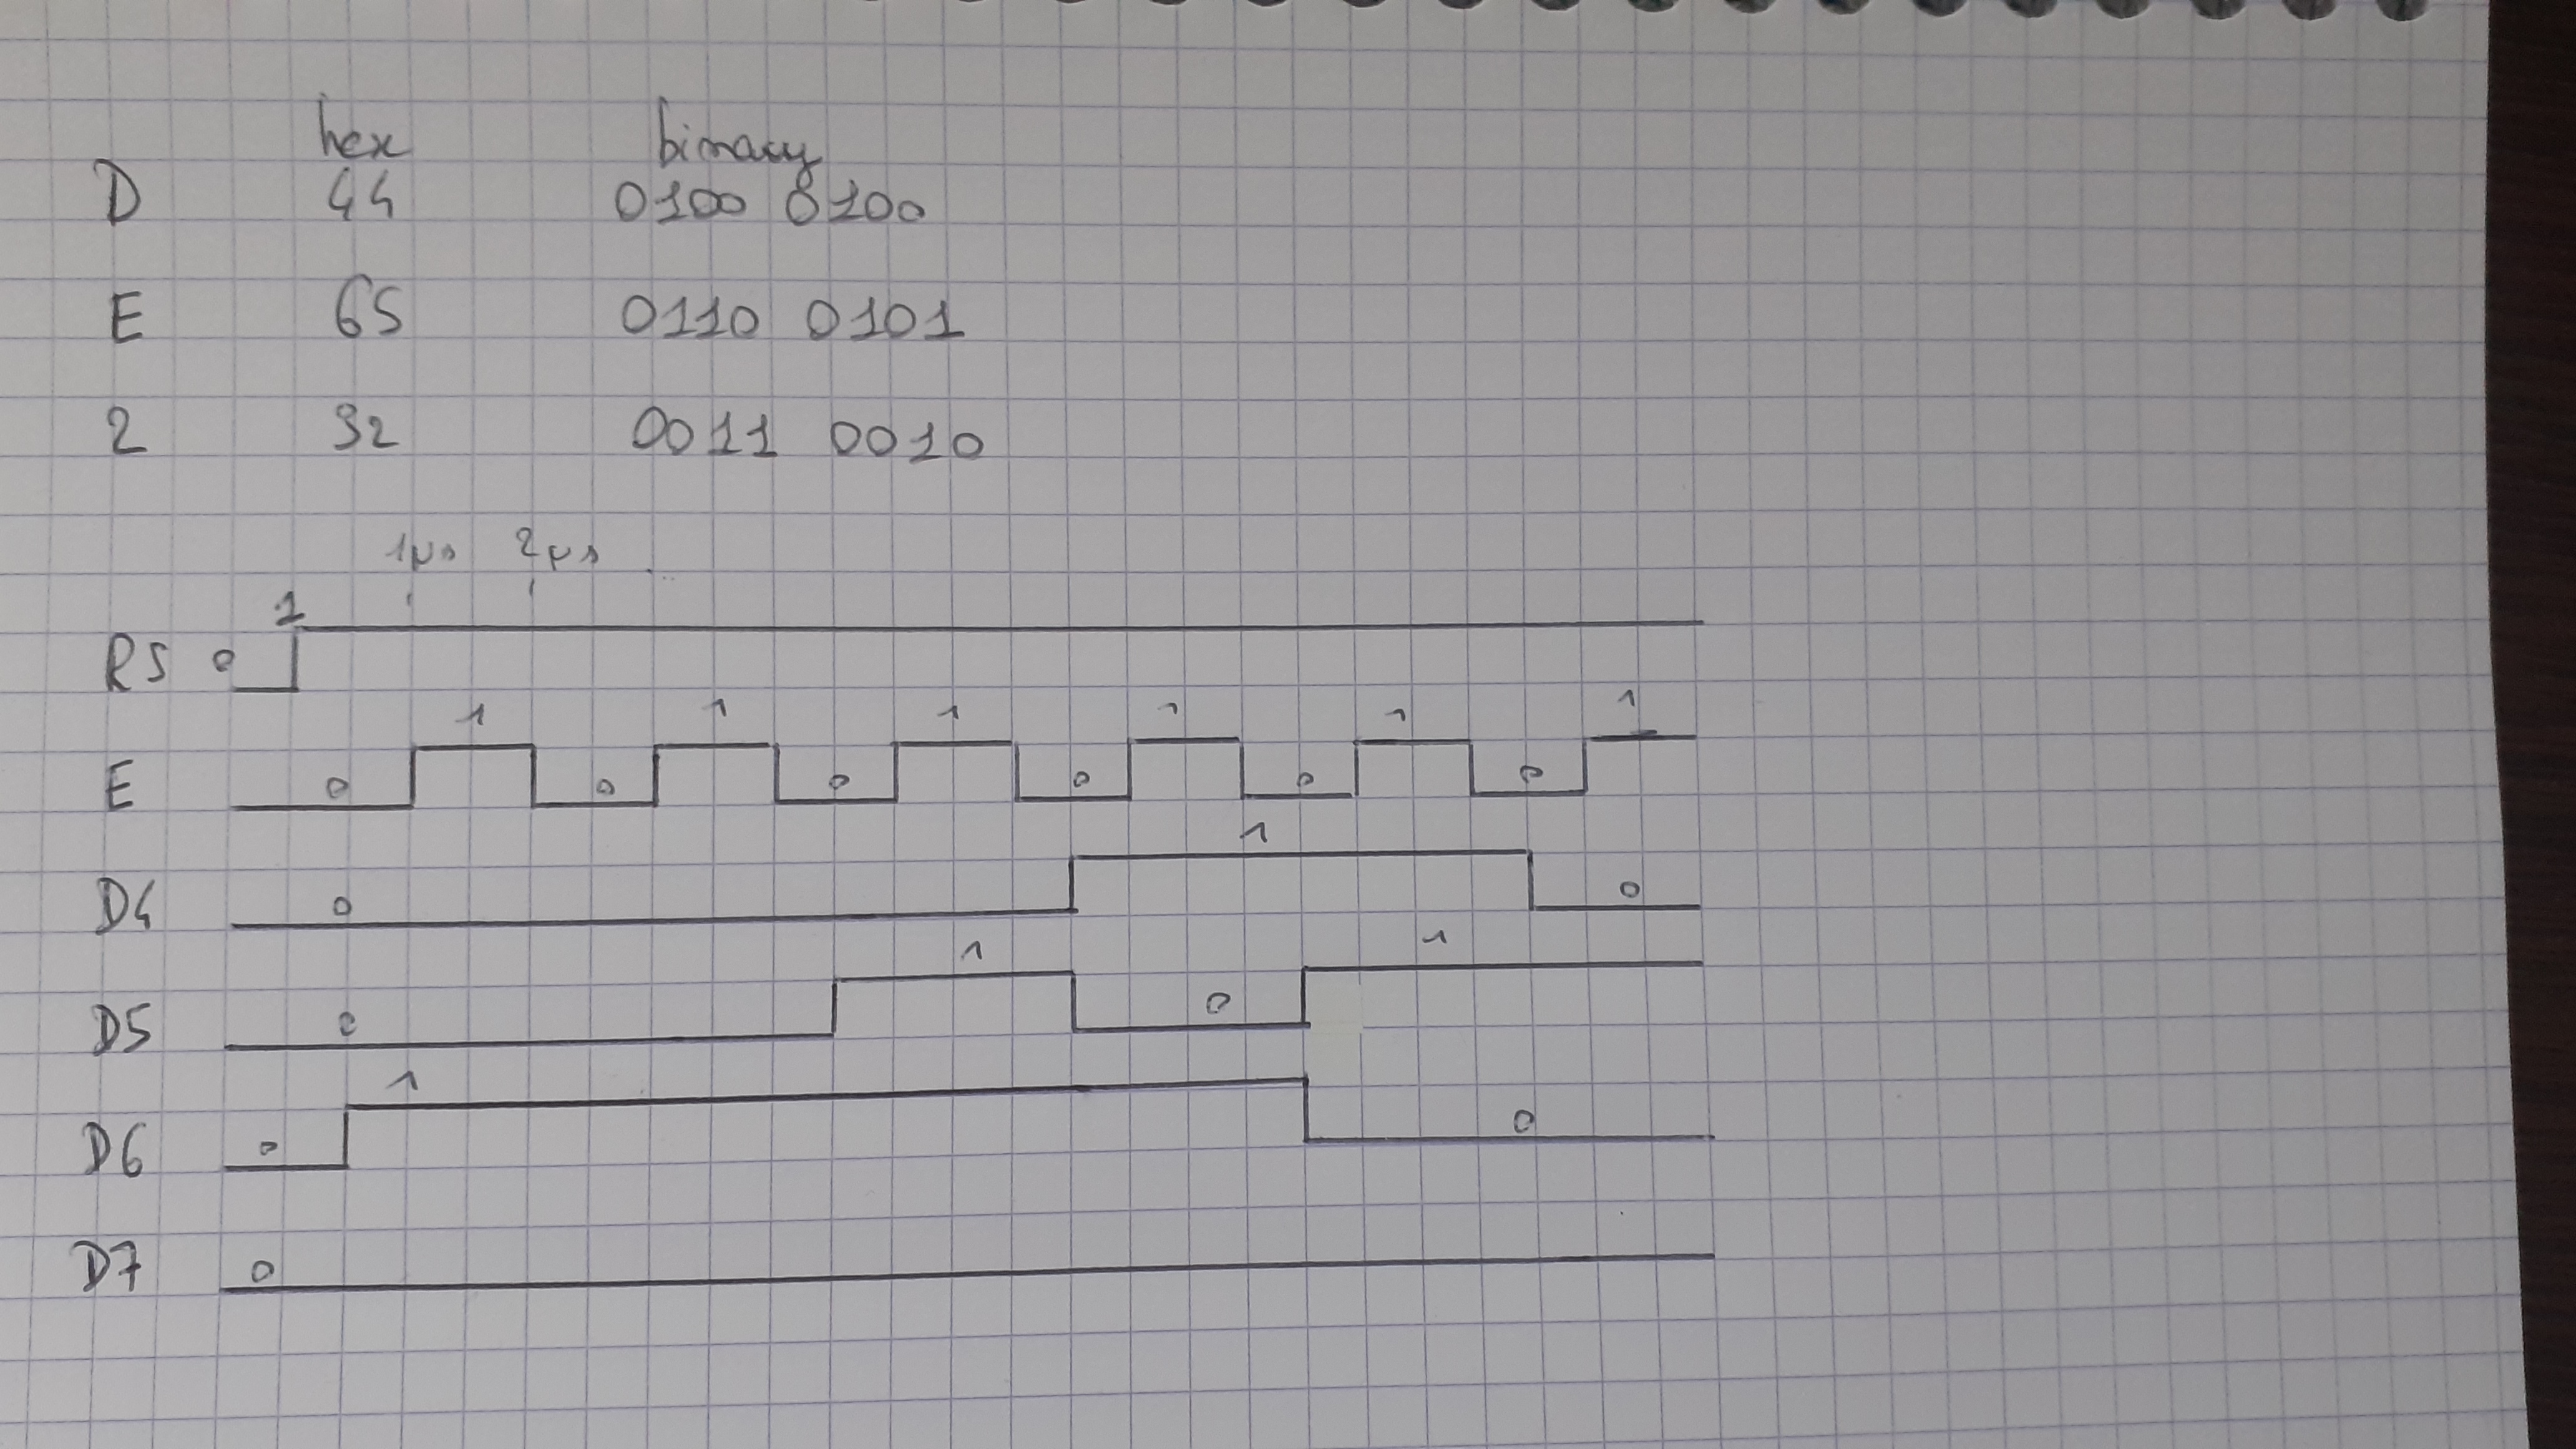 hex binary
D 44 0100 0100
E 65 0110 0101
2 32 0011 0010
1µs 2µs
RS 0 1
E 0 1 0 1 0 1 0 1 0 1 0 1
D4 0 1 0
D5 0 1 0 1
D6 0 1 0
D7 0